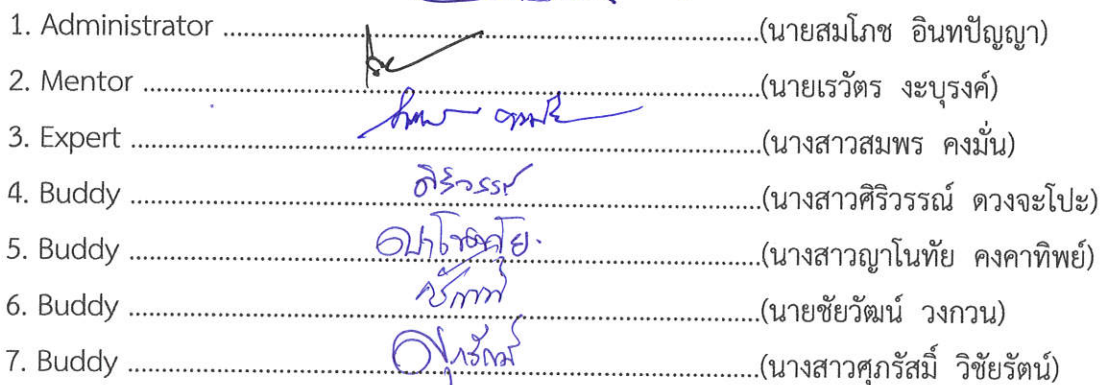 1. Administrator ........................................................................................(นายสมโภช อินทปัญญา)
2. Mentor .......................................................................................................(นายเรวัตร งะบุรงค์)
3. Expert .........................................................................................................(นางสาวสมพร คงมั่น)
4. Buddy ศิริวรรณ์ .........................................................................................................(นางสาวศิริวรรณ์ ดวงจะโปะ)
5. Buddy .........................................................................................................(นางสาวญาโนทัย คงคาทิพย์)
6. Buddy .........................................................................................................(นายชัยวัฒน์ วงกวน)
7. Buddy .........................................................................................................(นางสาวศุภรัสมิ์ วิชัยรัตน์)